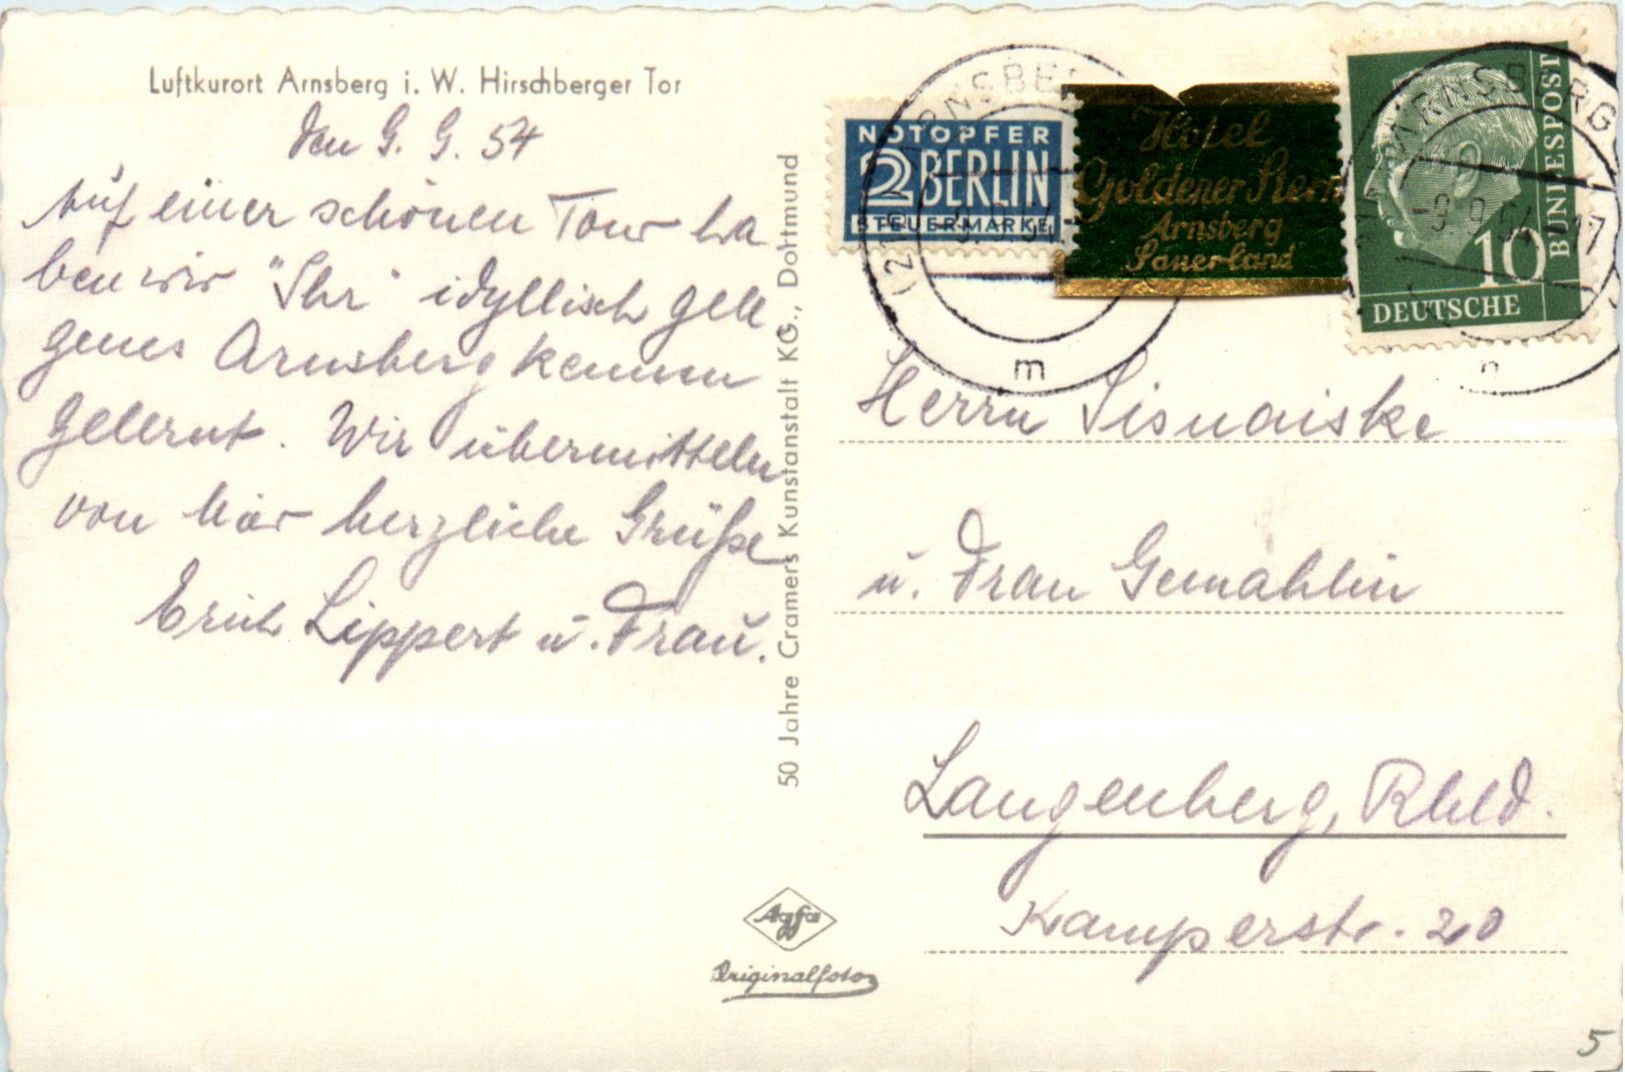 Luftkurort Arnsberg i. W. Hirschberger Tor
den 9. 9. 54
Auf einer schönen Tour ha
ben wir "Ihr" idyllisch gele
genes Arnsberg kennen
gelernt. Wir übermitteln
von hier herzliche Grüße
Erich Lippert u. Frau.
50 Jahre Cramers Kunstanstalt KG., Dortmund
Agfa
Originalfoto
NOTOPFER
2 BERLIN
STEUERMARKE
Hotel
Goldener Stern
Arnsberg
Sauerland
DEUTSCHE
BUNDESPOST
10
ARNSBERG
-9.9.54.-17
m
Herrn
u. Frau Gemahlin
Langenberg, Rhld.
Kamperstr. 20
5